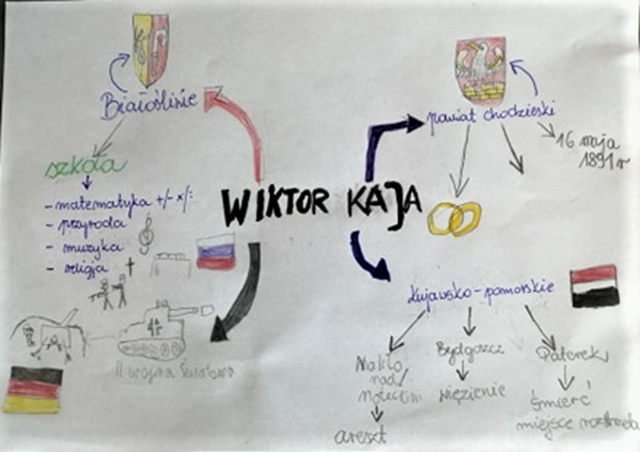 Białośliwie
szkoła
- matematyka +/- ×/:
- przyroda
- muzyka
- religja
II wojna światowa
WIKTOR KAJA
powiat chodzieski
16 maja
1891 r
kujawsko-pomorskie
Nakło
nad/
Notecią
areszt
Bydgoszcz
więzienie
Paterek
śmierć
miejsce